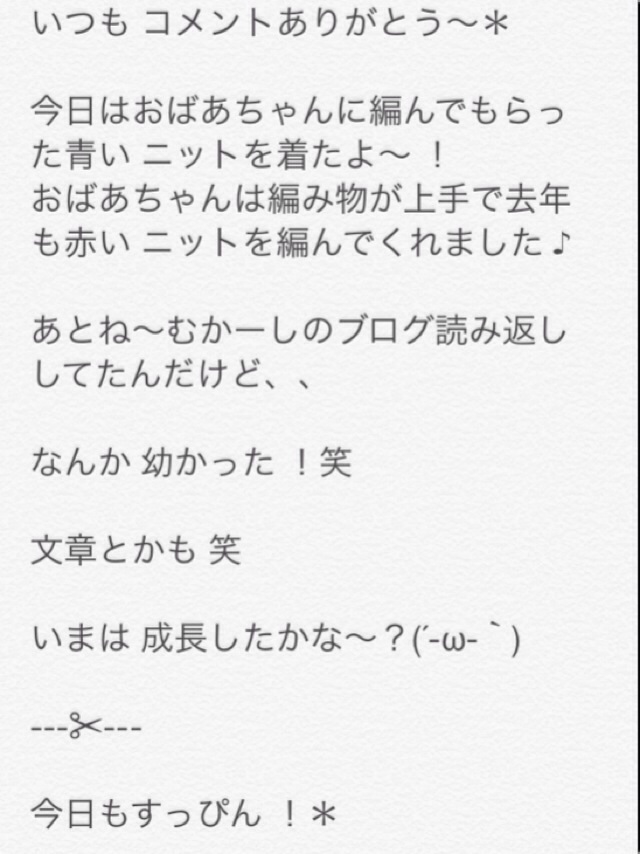 いつも コメントありがとう〜＊
今日はおばあちゃんに編んでもらっ
た青い ニットを着たよ〜 ！
おばあちゃんは編み物が上手で去年
も赤い ニットを編んでくれました♪
あとね〜むかーしのブログ読み返し
してたんだけど、、
なんか 幼かった ！笑
文章とかも 笑
いまは 成長したかな〜？(´-ω-｀)
---✂---
今日もすっぴん ！＊